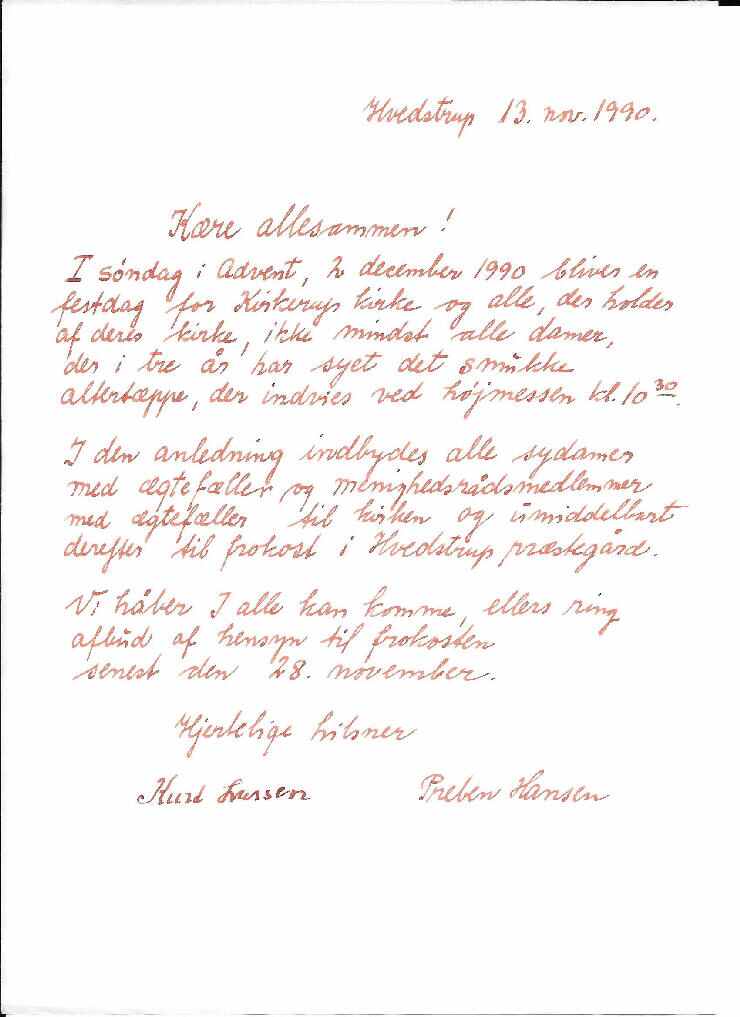 Hvedstrup 13. nov. 1990.
Kære allesammen!
I søndag i Advent, 2 december 1990 bliver en
festdag for Kirkerups kirke og alle, der holder
af deres kirke, ikke mindst alle damer,
der i tre år har syet det smukke
altertæppe, der indvies ved højmessen kl. 10 30.
I den anledning indbydes alle sydamer
med ægtefæller og menighedsrådsmedlemmer
med ægtefæller til kirken og umiddelbart
derefter til frokost i Hvedstrup præstegård.
Vi håber I alle kan komme, ellers ring
afbud af hensyn til frokosten
senest den 28. november.
Hjertelige hilsner
Kurt Larsen Preben Hansen